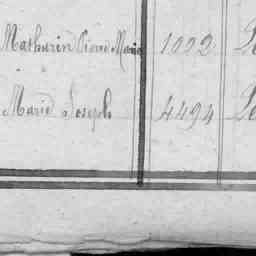 Mathurin Pierre Marie 1092
Marie Joseph 4494